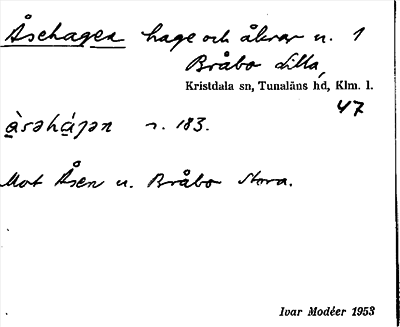 Åsehagen hage och åkrar u. 1
Bråbo Lilla,
Kristdala sn, Tunaläns hd, Klm. l.
47
s. 183.
Mot Åsen u. Bråbo Stora.
Ivar Modéer 1953